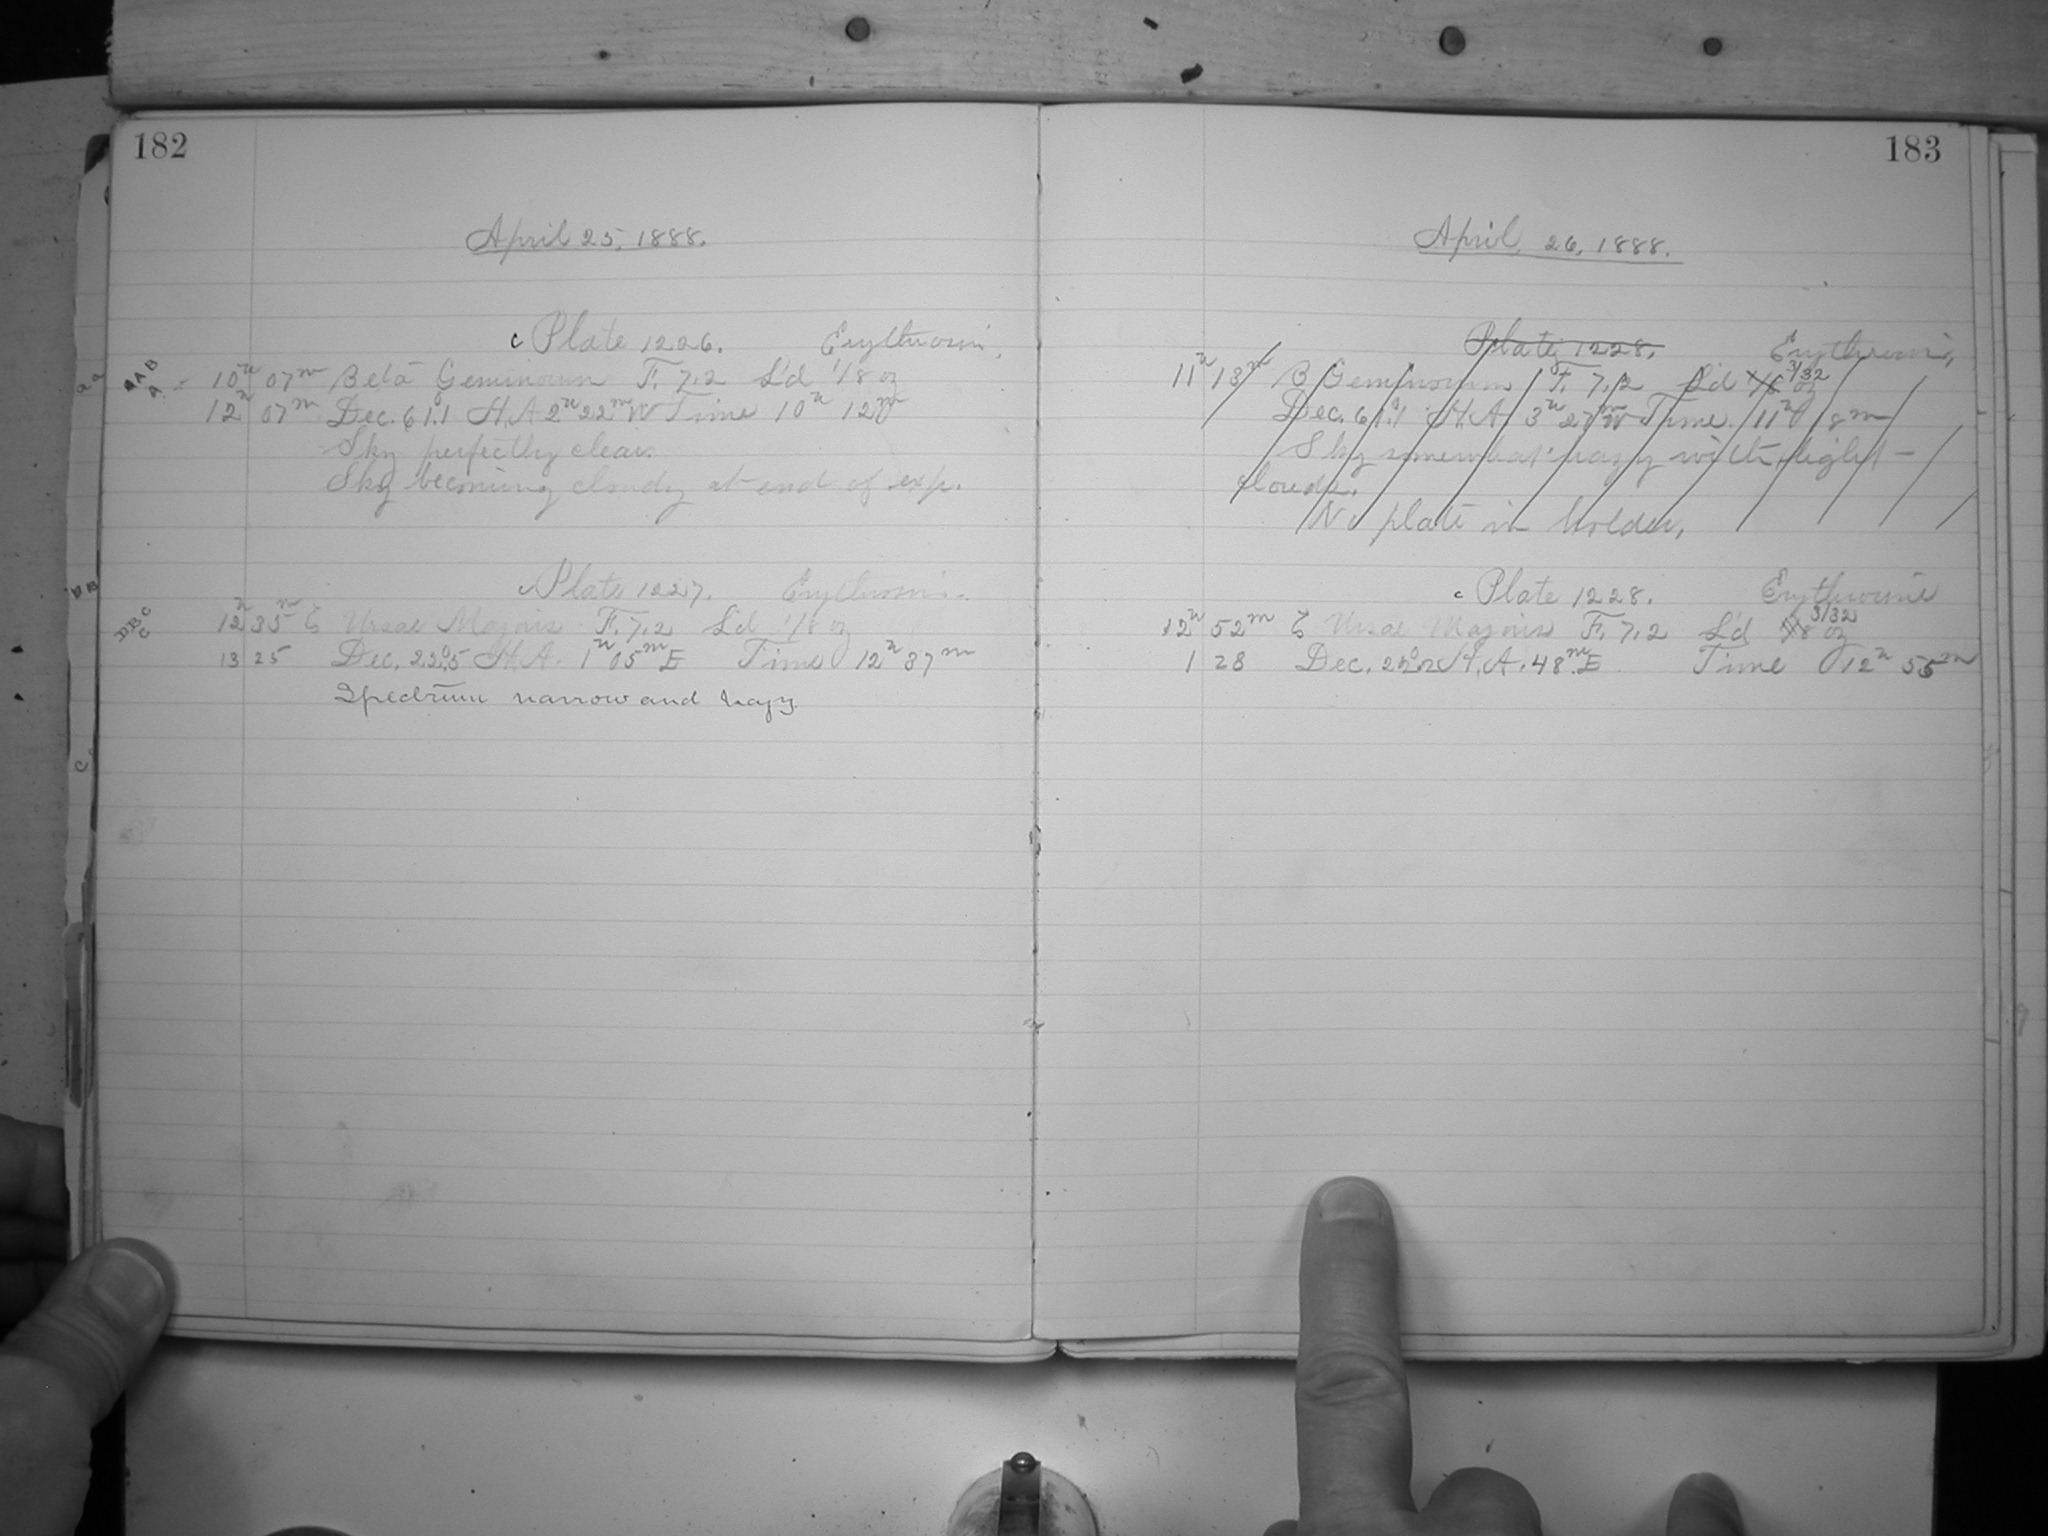 182
April 25, 1888.
c Plate 1226. Erythrosin.
10h 07m Beta Geminorum F. 7.2 S'd 1/8 oz
12h 07m Dec. 61°.1 H.A. 2h 22m W Time 10h 12m
Sky perfectly clear.
Sky becoming cloudy at end of exp.
c Plate 1227. Erythrosin.
12h 35m ζ Ursae Majoris F. 7.2 S'd 1/8 oz
13 25 Dec. 22°.5 H.A. 1h 05m E Time 12h 37m
Spectrum narrow and hazy.
183
April 26, 1888.
Plate 1228. Erythrosin,
11h 13m B Geminorum F. 7.2 S'd 3/32 oz
Dec. 61°.1 H.A. 3h 27m W Time 11h 18m
Sky somewhat hazy with light
clouds.
No plate in holder.
c Plate 1228. Erythrosine
12h 52m ζ Ursae Majoris F. 7.2 S'd 3/32 oz
1 28 H.A. 48m E Time 12h 55m